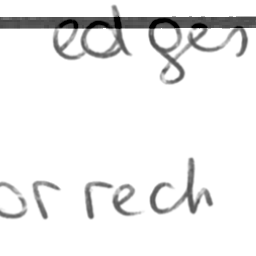 edges
orrech